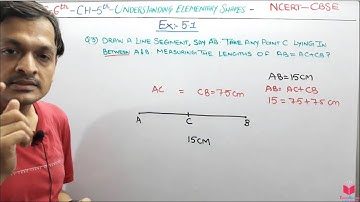 6th-CH-5th-UNDERSTANDING ELEMENTARY SHAPES - NCERT-CBSE
Ex:- 5.1
Q3) DRAW A LINE SEGMENT, SAY AB. TAKE ANY POINT C LYING IN
BETWEEN A&B. MEASURING THE LENGTHS OF AB=AC+CB?
AC = CB=7.5cm
AB=15CM
AB= AC+CB
15=7.5+7.5cm
A C B
15CM